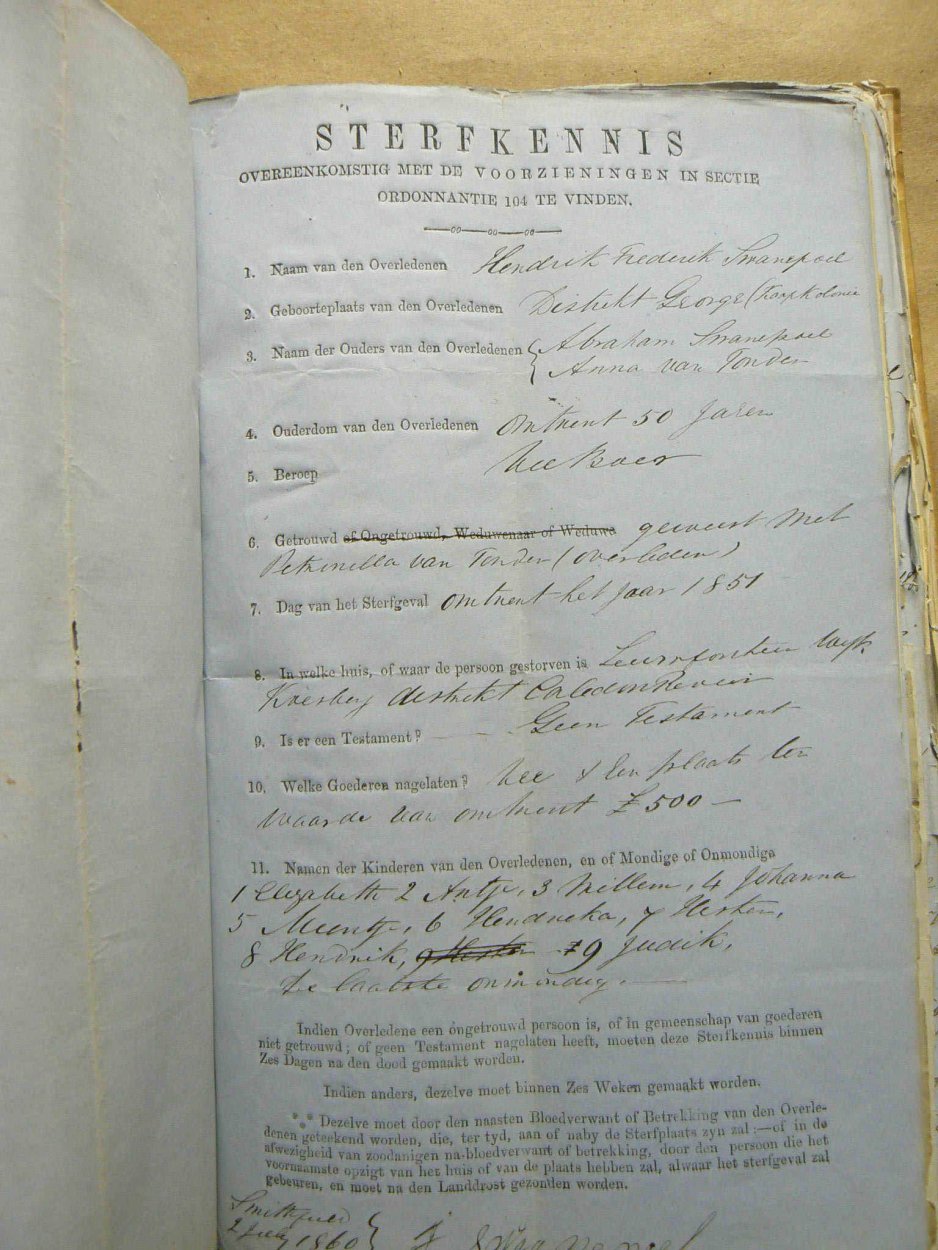 STERFKENNIS
OVEREENKOMSTIG MET DE VOORZIENINGEN IN SECTIE
ORDONNANTIE 104 TE VINDEN.
1. Naam van den Overledenen Hendrik Frederik Swanepoel
2. Geboorteplaats van den Overledenen Distrikt George (Kaap Kolonie
3. Naam der Ouders van den Overledenen { Abraham Swanepoel
Anna van Tonder
4. Ouderdom van den Overledenen Omtrent 50 Jaren
5. Beroep Vee Boer
6. Getrouwd of Ongetrouwd, Weduwenaar of Weduwe geweest met
Petronella van Tonder (overleden)
7. Dag van het Sterfgeval Omtrent het Jaar 1851
8. In welke huis, of waar de persoon gestorven is Leeuwfontein Wyk
Koesberg distrikt Caledon Revier
9. Is er een Testament? — Geen Testament
10. Welke Goederen nagelaten? Vee & Een plaats ter
waarde van omtrent £500 —
11. Namen der Kinderen van den Overledenen, en of Mondige of Onmondige
1 Elizabeth 2 Antje, 3 Willem, 4 Johanna
5 Meintje, 6 Hendrieka, 7 Hester,
8 Hendrik, 9 Hester 9 Judik,
de laatste onmondig. —
Indien Overledene een ongetrouwd persoon is, of in gemeenschap van goederen
niet getrouwd; of geen Testament nagelaten heeft, moeten deze Sterfkennis binnen
Zes Dagen na den dood gemaakt worden.
Indien anders, dezelve moet binnen Zes Weken gemaakt worden.
*** Dezelve moet door den naasten Bloedverwant of Betrekking van den Overle-
denen geteekend worden, die, ter tyd, aan of naby de Sterfplaats zyn zal:—of in de
afwezigheid van zoodanigen na-bloedverwant of betrekking, door den persoon die het
voornaamste opzigt van het huis of van de plaats hebben zal, alwaar het sterfgeval zal
gebeuren, en moet na den Landdrost gezonden worden.
Smithfield
2 1860 } J Swanepoel